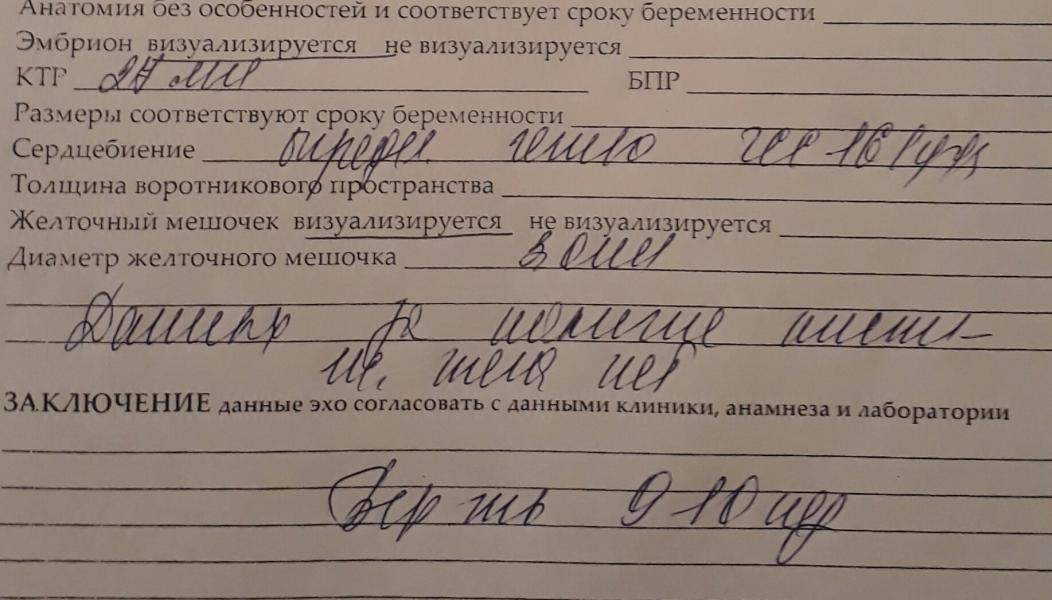 Анатомия без особенностей и соответствует сроку беременности
Эмбрион визуализируется не визуализируется
КТР 27 мм БПР
Размеры соответствуют сроку беременности
Сердцебиение определ. чсс 161 уд
Толщина воротникового пространства
Желточный мешочек визуализируется не визуализируется
Диаметр желточного мешочка мм
Данных за наличие
тела нет
ЗАКЛЮЧЕНИЕ данные эхо согласовать с данными клиники, анамнеза и лаборатории
Бер ть 9 10 нед